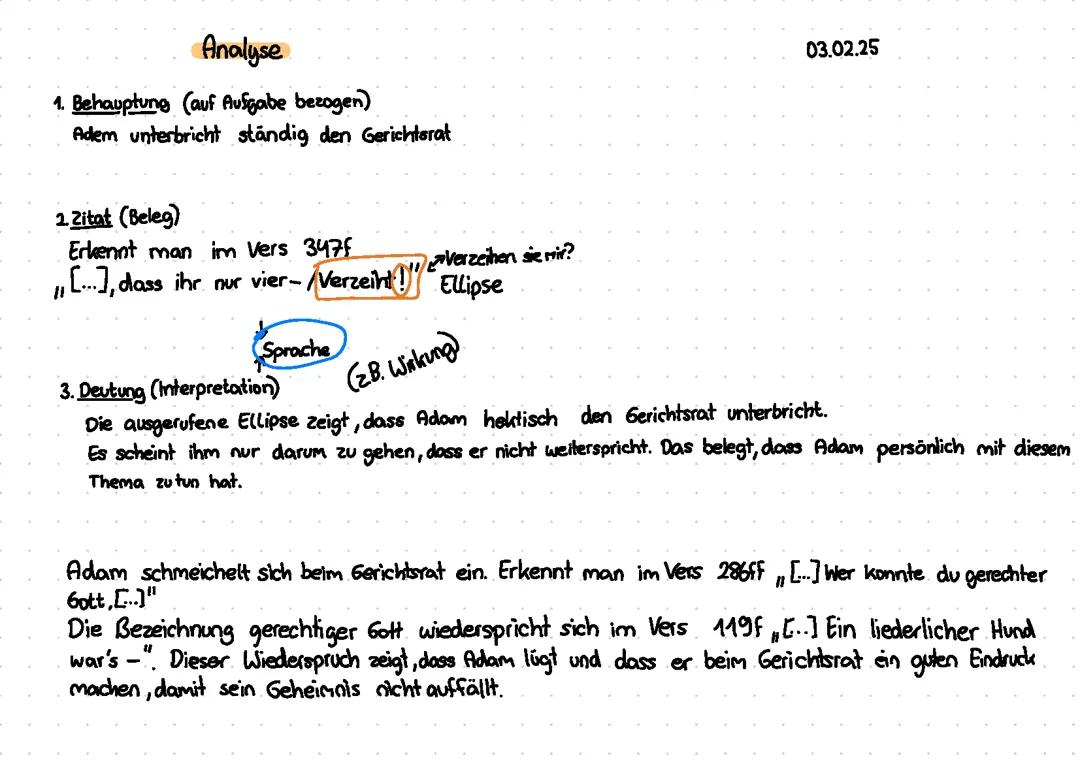 Analyse
03.02.25
1. Behauptung (auf Aufgabe bezogen)
Adem unterbricht ständig den Gerichtsrat
2. Zitat (Beleg)
Erkennt man im Vers 347f
„[...], dass ihr nur vier- / Verzeiht!"
Verzeihen sie mir?
Ellipse
Sprache
(z.B. Wirkung)
3. Deutung (Interpretation)
Die ausgerufene Ellipse zeigt, dass Adam hektisch den Gerichtsrat unterbricht.
Es scheint ihm nur darum zu gehen, dass er nicht weiterspricht. Das belegt, dass Adam persönlich mit diesem
Thema zu tun hat.
Adam schmeichelt sich beim Gerichtsrat ein. Erkennt man im Vers 286ff „[...] Wer konnte du gerechter
Gott, [...]"
Die Bezeichnung gerechtiger Gott wiederspricht sich im Vers 119f „[...] Ein liederlicher Hund
war's -". Dieser Wiederspruch zeigt, dass Adam lügt und dass er beim Gerichtsrat ein guten Eindruck
machen, damit sein Geheimnis nicht auffällt.